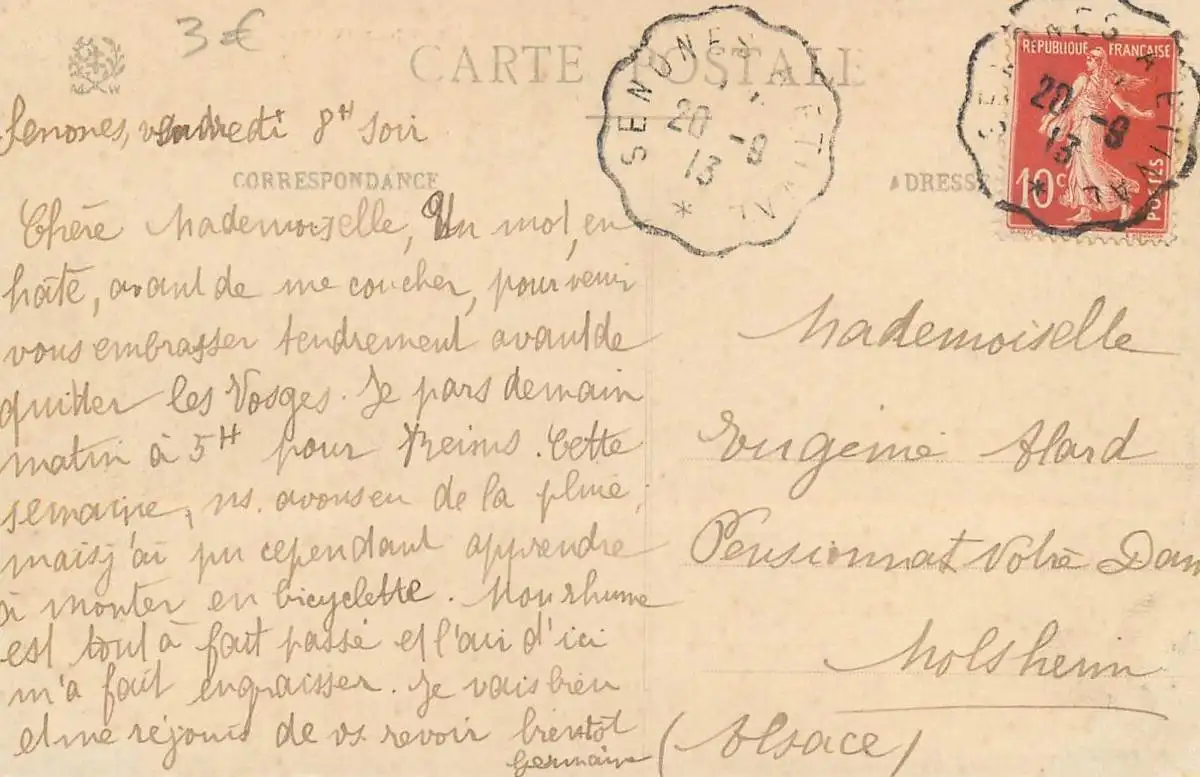 3 €
CARTE POSTALE
M W
SENONES A ETIVAL
20 - 9
13
*
SENONES A ETIVAL
20 - 9
13
*
RÉPUBLIQUE FRANÇAISE
10 c
POSTES
Senones, vendredi 8H soir
CORRESPONDANCE
ADRESSE
Chère Mademoiselle, Un mot, en
hâte, avant de me coucher, pour venir
vous embrasser tendrement avant de
quitter les Vosges. Je pars demain
matin à 5H pour Reims. Cette
semaine, ns. avons eu de la pluie,
mais j'ai pu cependant apprendre
à monter en bicyclette. Mon rhume
est tout à fait passé et l'air d'ici
m'a fait engraisser. Je vais bien
et me réjouis de vs revoir bientôt
Germaine
Mademoiselle
Eugénie Alard
Pensionnat Notre Dam
Molsheim
(Alsace)